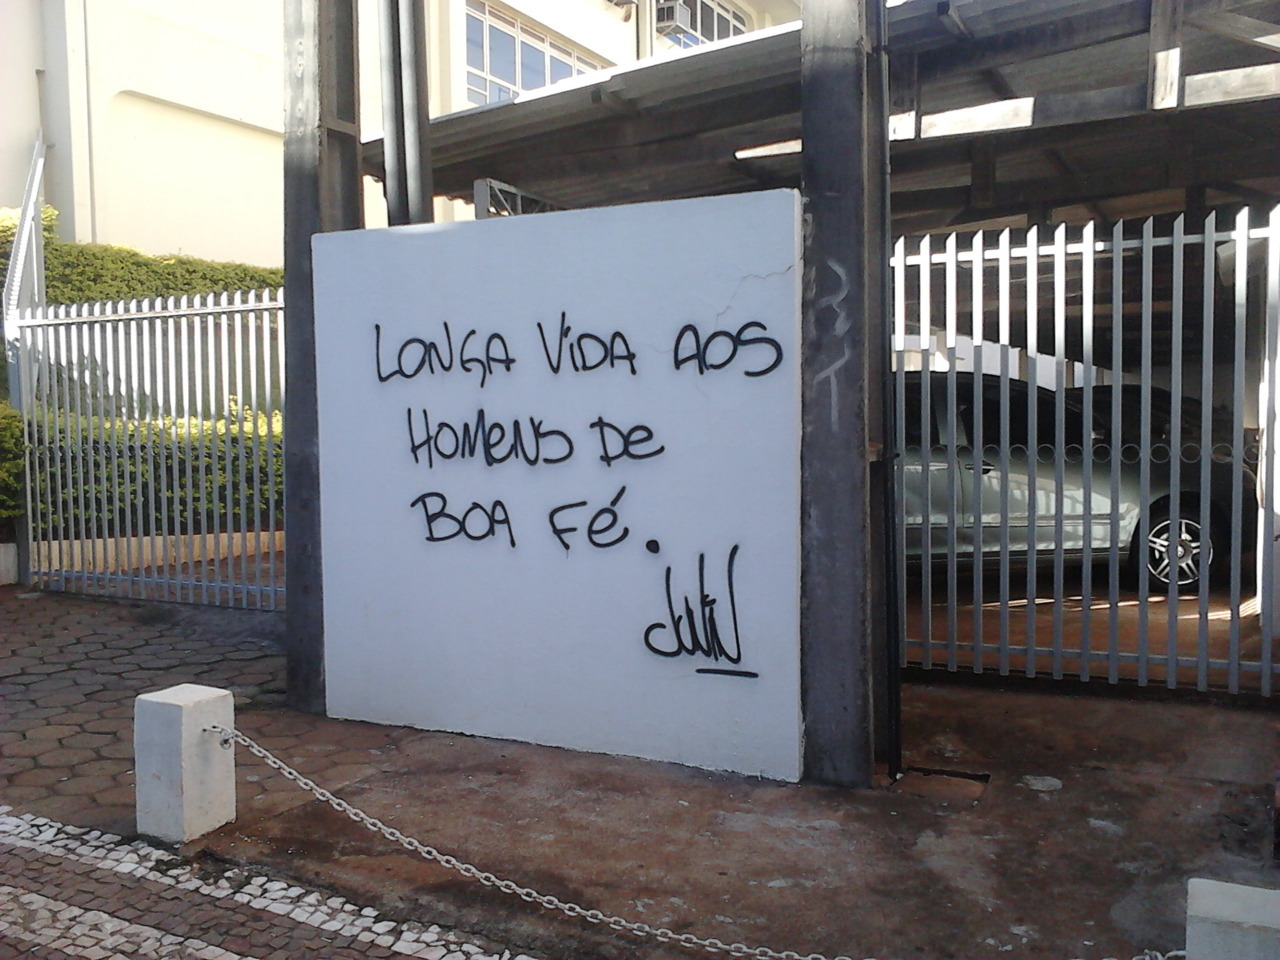 LONGA VIDA AOS
HOMENS DE
BOA FÉ.